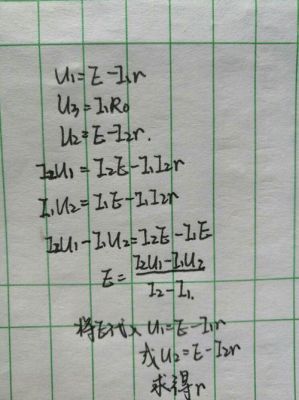 U₁=E-I₁r
U₃=I₁R₀
U₂=E-I₂r.
I₂U₁=I₂E-I₁I₂r
I₁U₂=I₁E-I₁I₂r
I₂U₁-I₁U₂=I₂E-I₁E
E=(I₂U₁-I₁U₂)/(I₂-I₁)
将E代入U₁=E-I₁r
或U₂=E-I₂r
求得r